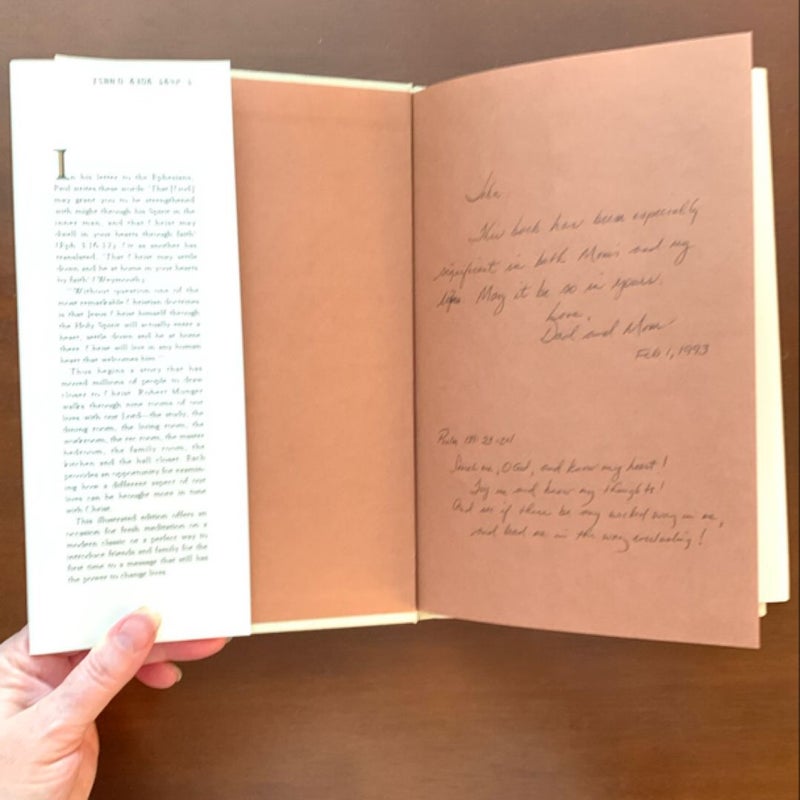 In his letter to the Ephesians,
Paul writes these words: "That [God]
may grant you to be strengthened
with might through his Spirit in the
inner man, and that Christ may
dwell in your hearts through faith"
(Eph 3:16-17). Or as another has
translated, "That Christ may settle
down and be at home in your hearts
by faith" (Weymouth).
"Without question one of the
most remarkable Christian doctrines
is that Jesus Christ himself through
the Holy Spirit will actually enter a
heart, settle down and be at home
there. Christ will live in any human
heart that welcomes him."
Thus begins a story that has
moved millions of people to draw
closer to Christ. Robert Munger
walks through nine rooms of our
lives with our Lord—the study, the
dining room, the living room, the
workroom, the rec room, the master
bedroom, the family room, the
kitchen and the hall closet. Each
provides an opportunity for examin-
ing how a different aspect of our
lives can be brought more in tune
with Christ.
This illustrated edition offers an
occasion for fresh meditation on a
modern classic or a perfect way to
introduce friends and family for the
first time to a message that still has
the power to change lives.
John,
This book has been especially
significant in both Mom's and my
lifes. May it be so in yours.
Love,
Dad and Mom
Feb 1, 1993
Psalm 139:23-24
Search me, O God, and know my heart!
Try me and know my thoughts!
And see if there be any wicked way in me,
and lead me in the way everlasting!